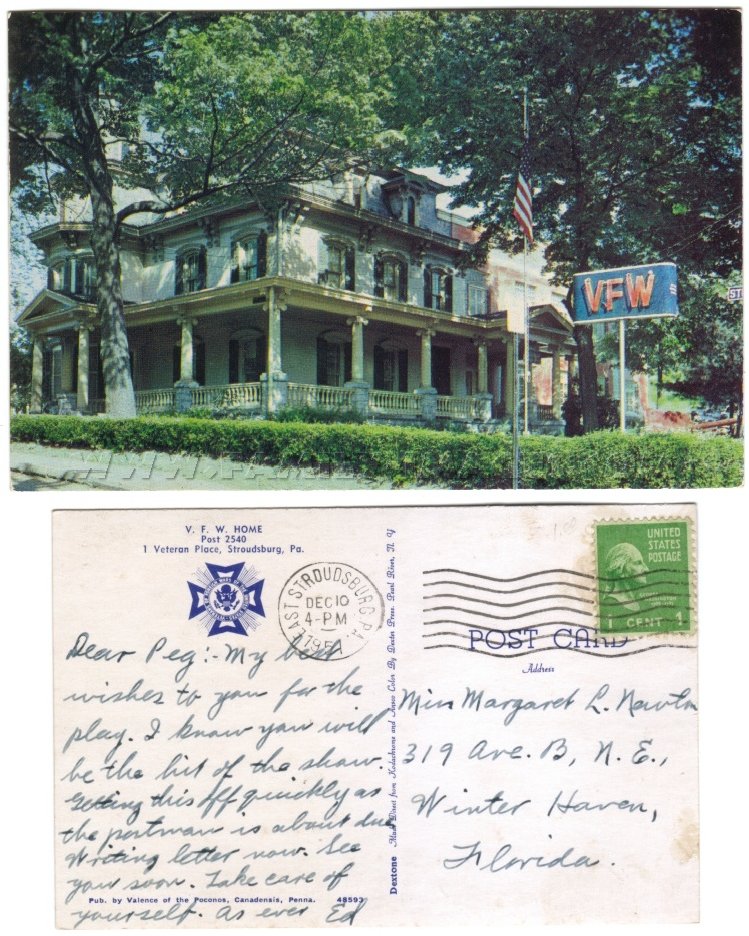 VFW
ST
V. F. W. HOME
Post 2540
1 Veteran Place, Stroudsburg, Pa.
Dear Peg:- My best
wishes to you for the
play. I know you will
be the hit of the show.
Getting this off quickly as
the postman is about due
Writing letter now. See
you soon. Take care of
yourself. As ever Ed
Pub. by Valence of the Poconos, Canadensis, Penna. 48593
Dextone Made Direct from Kodachrome and Ansco Color By Dexter Press, Pearl River, N. Y.
EAST STROUDSBURG PA.
DEC 10
4-PM
1951
UNITED
STATES
POSTAGE
1 CENT 1
POST CARD
Address
Miss Margaret L. Newton
319 Ave. B, N. E.,
Winter Haven,
Florida.